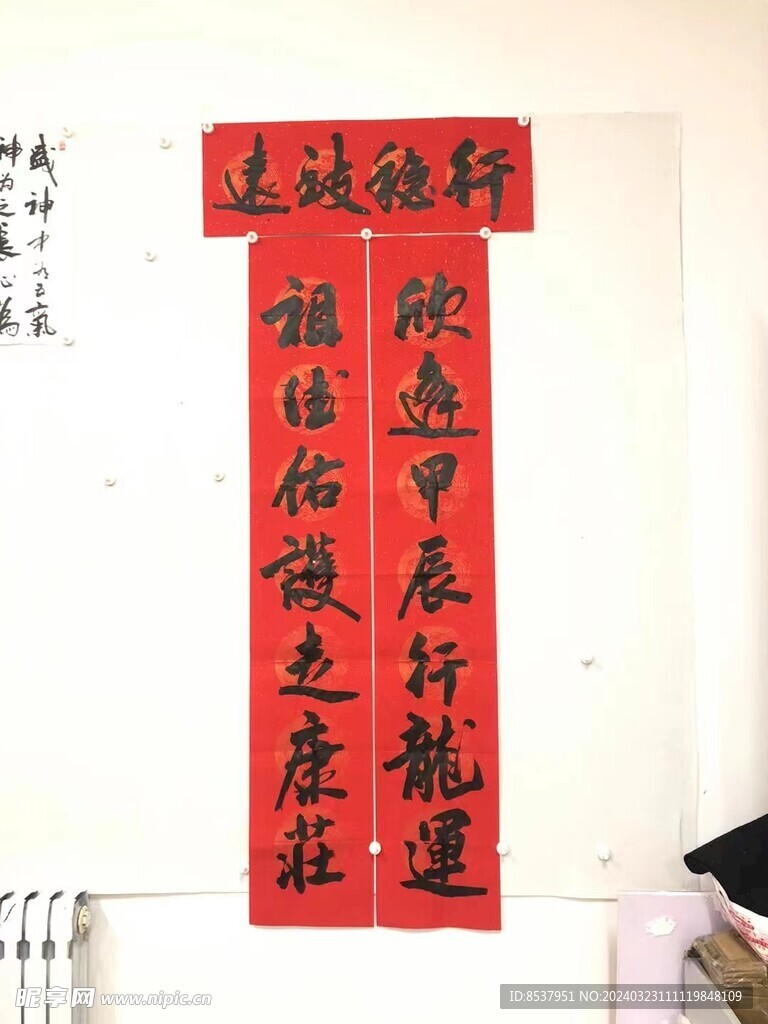 行稳致遠
欣逢甲辰行龍運
祖德佑護走康莊
盛神中有五氣
神为之長心為
昵享网 www.nipic.cn
ID:8537951 NO:20240323111119848109